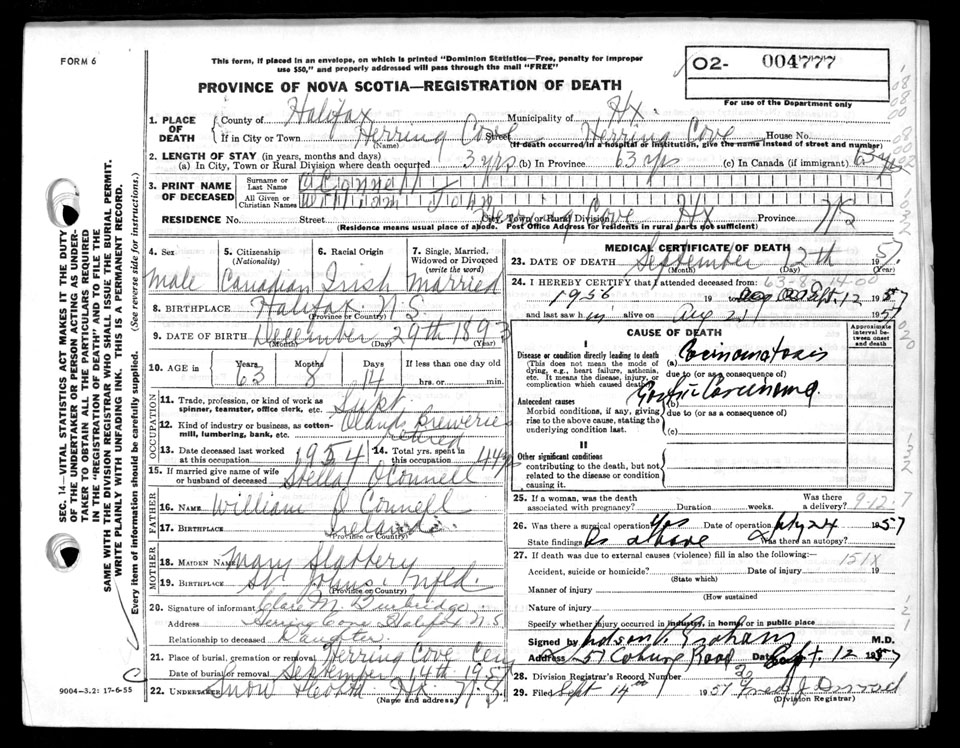 FORM 6
This form, if placed in an envelope, on which is printed "Dominion Statistics—Free, penalty for improper
use $50," and properly addressed will pass through the mail "FREE"
02- 004777
For use of the Department only
PROVINCE OF NOVA SCOTIA—REGISTRATION OF DEATH
1. PLACE OF DEATH
County of Halifax Municipality of Hx.
If in City or Town Herring Cove Street Herring Cove House No.
(Name) (If death occurred in a hospital or institution, give the name instead of street and number)
2. LENGTH OF STAY (in years, months and days)
(a) In City, Town or Rural Division where death occurred 3 yrs (b) In Province 63 yrs (c) In Canada (if immigrant) 63 yrs
3. PRINT NAME OF DECEASED
Surname or Last Name O'Connell
All Given or Christian Names William John
RESIDENCE No. Street City, Town or Rural Division Herring Cove Hx Province NS
(Residence means usual place of abode. Post Office Address for residents in rural parts not sufficient)
4. Sex Male
5. Citizenship (Nationality) Canadian
6. Racial Origin Irish
7. Single, Married, Widowed or Divorced (write the word) Married
8. BIRTHPLACE Halifax N.S.
(Province or Country)
9. DATE OF BIRTH December 29th 1893
(Month) (Day) (Year)
10. AGE in Years 63 Months 8 Days 14 If less than one day old
hrs. or min.
OCCUPATION
11. Trade, profession, or kind of work as
spinner, teamster, office clerk, etc. Supt.
12. Kind of industry or business, as cotton-
mill, lumbering, bank, etc. Olands Breweries
retired
13. Date deceased last worked
at this occupation 1954
14. Total yrs. spent in
this occupation 44 yrs
15. If married give name of wife
or husband of deceased Stella O'Connell
FATHER
16. NAME William O'Connell
17. BIRTHPLACE Ireland
(Province or Country)
MOTHER
18. MAIDEN NAME Mary Slattery
19. BIRTHPLACE St. Johns, Nfld.
(Province or Country)
20. Signature of informant Clare M.
Address Herring Cove Halifax N.S
Relationship to deceased Daughter
21. Place of burial, cremation or removal Herring Cove Cem
Date of burial or removal September 14th 1957
22. UNDERTAKER Snow Hx. N.S.
(Name and address)
MEDICAL CERTIFICATE OF DEATH
23. DATE OF DEATH September 12th 1957
(Month) (Day) (Year)
24. I HEREBY CERTIFY that I attended deceased from:
1956 19 to Sept. 12 1957
and last saw him alive on Aug 21 1957
CAUSE OF DEATH
Approximate interval between onset and death
I
Disease or condition directly leading to death
(This does not mean the mode of
dying, e.g., heart failure, asthenia,
etc. It means the disease, injury, or
complication which caused death)
(a) Carcinomatosis
due to (or as a consequence of)
Antecedent causes
Morbid conditions, if any, giving
rise to the above cause, stating the
underlying condition last.
(b) Gastric Carcinoma
due to (or as a consequence of)
(c)
II
Other significant conditions
contributing to the death, but not
related to the disease or condition
causing it.
25. If a woman, was the death
associated with pregnancy? Duration weeks. Was there a delivery?
9-12-7
26. Was there a surgical operation? Yes Date of operation July 24 1957
State findings As above Was there an autopsy?
27. If death was due to external causes (violence) fill in also the following:—
151X
Accident, suicide or homicide? Date of injury 19
(State which)
Manner of injury
(How sustained
Nature of injury
Specify whether injury occurred in industry, in home or in public place
Signed by Judson V. Graham M.D.
Address 257 Coburg Road Date Sept. 12 1957
28. Division Registrar's Record Number
29. Filed Sept 14th 1957
(Division Registrar)
SEC. 14—VITAL STATISTICS ACT MAKES IT THE DUTY
OF THE UNDERTAKER OR PERSON ACTING AS UNDER-
TAKER TO OBTAIN ALL THE PARTICULARS REQUIRED
IN THE "REGISTRATION OF DEATH" AND TO FILE THE
SAME WITH THE DIVISION REGISTRAR WHO SHALL ISSUE THE BURIAL PERMIT.
WRITE PLAINLY WITH UNFADING INK. THIS IS A PERMANENT RECORD.
Every item of information should be carefully supplied. (See reverse side for instructions.)
9004-3.2: 17-6-55